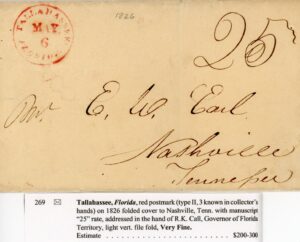 TALLAHASSEE
MAY
6
FLORIDA
1826
25
E. W. Earl
Nashville
Tennessee
269 Tallahassee, Florida, red postmark (type II, 3 known in collector's
hands) on 1826 folded cover to Nashville, Tenn. with manuscript
"25" rate, addressed in the hand of R.K. Call, Governor of Florida
Territory, light vert. file fold, Very Fine.
Estimate . . . . . . . . . . . . . . . . . . . . . . . . . . . . $200-300